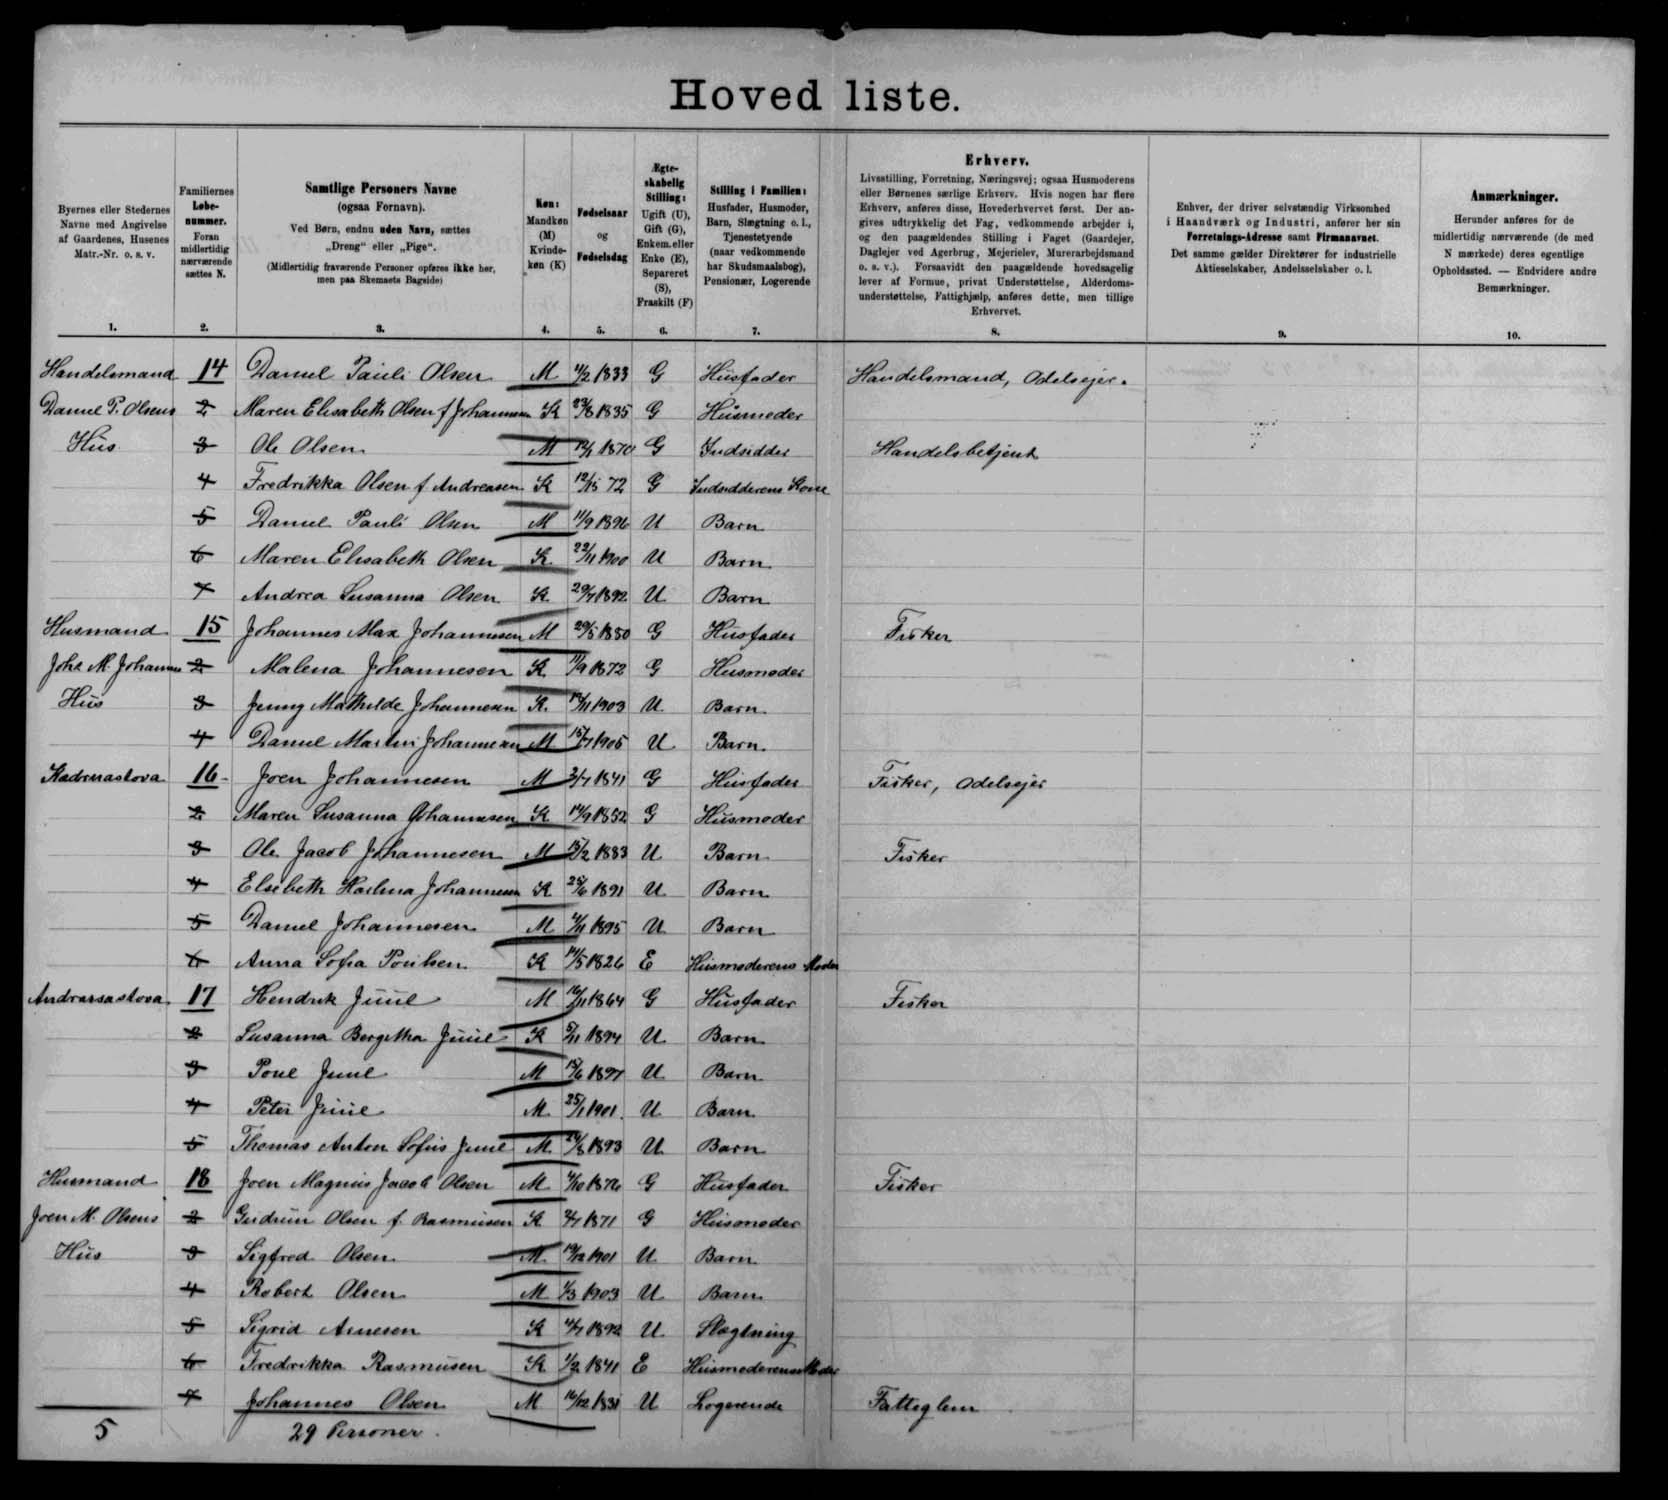 Hoved liste.
Byernes eller Stedernes Navne med Angivelse af Gaardenes, Husenes Matr.-Nr. o. s. v.
Familiernes Løbe-nummer. Foran midlertidig nærværende sættes N.
Samtlige Personers Navne (ogsaa Fornavn). Ved Børn, endnu uden Navn, sættes „Dreng“ eller „Pige“. (Midlertidig fraværende Personer opføres ikke her, men paa Skemaets Bagside)
Køn: Mandkøn (M) Kvinde-køn (K)
Fødselsaar og Fødselsdag
Ægte-skabelig Stilling: Ugift (U), Gift (G), Enkem. eller Enke (E), Separeret (S), Fraskilt (F)
Stilling i Familien: Husfader, Husmoder, Barn, Slægtning o. l., Tjenestetyende (naar vedkommende har Skudsmaalsbog), Pensionær, Logerende
Erhverv.
Livsstilling, Forretning, Næringsvej; ogsaa Husmoderens
eller Børnenes særlige Erhverv. Hvis nogen har flere
Erhverv, anføres disse, Hovederhvervet først. Der an-
gives udtrykkelig det Fag, vedkommende arbejder i,
og den paagældendes Stilling i Faget (Gaardejer,
Daglejer ved Agerbrug, Mejerielev, Murerarbejdsmand
o. s. v.). Forsaavidt den paagældende hovedsagelig
lever af Formue, privat Understøttelse, Alderdoms-
understøttelse, Fattighjælp, anføres dette, men tillige
Erhvervet.
Enhver, der driver selvstændig Virksomhed
i Haandværk og Industri, anfører her sin
Forretnings-Adresse samt Firmanavnet.
Det samme gælder Direktører for industrielle
Aktieselskaber, Andelsselskaber o. l.
Anmærkninger.
Herunder anføres for de
midlertidig nærværende (de med
N mærkede) deres egentlige
Opholdssted. — Endvidere andre
Bemærkninger.
1. 2. 3. 4. 5. 6. 7. 8. 9. 10.
Handelsmand 14 Daniel Pauli Olsen M 4/2 1833 G Husfader Handelsmand, Odelsejer.
Daniel P. Olsens 2 Maren Elisabeth Olsen f Johannesen K 1835 G Husmoder
Hus 3 Ole Olsen M 1870 G Indsidder Handelsbetjent
4 Fredrikka Olsen f. Andreasen K 72 G Indsidderens Kone
5 Daniel Pauli Olsen M 11/9 1896 U Barn
6 Maren Elisabeth Olsen K 22/11 1900 U Barn
7 Andrea Susanna Olsen K 1892 U Barn
Husmand 15 Johannes Max Johannesen M 29/5 1880 G Husfader Fisker
Johs M. Johannes 2 Malena Johannesen K 1872 G Husmoder
Hus 3 Jenny Mathilde Johannesen K. 1903 U Barn
4 Daniel Martin Johannesen M 1905 U Barn.
16 Joen Johannesen M 1841 G Husfader Fisker, Odelsejer
2 Maren Susanna Johannesen K 14/9 1852 G Husmoder
3 Ole Jacob Johannesen M 1883 U Barn Fisker
4 Elsebeth Johannesen K 25/6 1891 U Barn
5 Daniel Johannesen M 1895 U Barn
6 Anna Sofia Poulsen K 14/5 1826 E Husmoderens Moder
Andreasastova 17 Hendrik Juul M 16/11 1864 G Husfader Fisker
2 Susanna Bergitha Juul K 5/11 1894 U Barn
3 Poul Juul M 1897 U Barn
4 Peter Juul M 25/1 1901. U Barn
5 Thomas Anton Sofus Juul M 1893 U Barn
Husmand 18 Joen Magnus Jacob Olsen M 1876 G Husfader Fisker
Joen M. Olsens 2 Gudrun Olsen f. Rasmusen K 1871 G Husmoder
Hus 3 Sigfred Olsen M. 19/12 1901 U Barn
4 Robert Olsen M 1/3 1903 U Barn
5 Sigrid Arnesen K 1892 U Slægtning
6 Fredrikka Rasmusen K 1/2 1841 E Husmoderens Moder
7 Johannes Olsen M 16/12 1831 U Logerende Fatteglem
5 29 Personer.